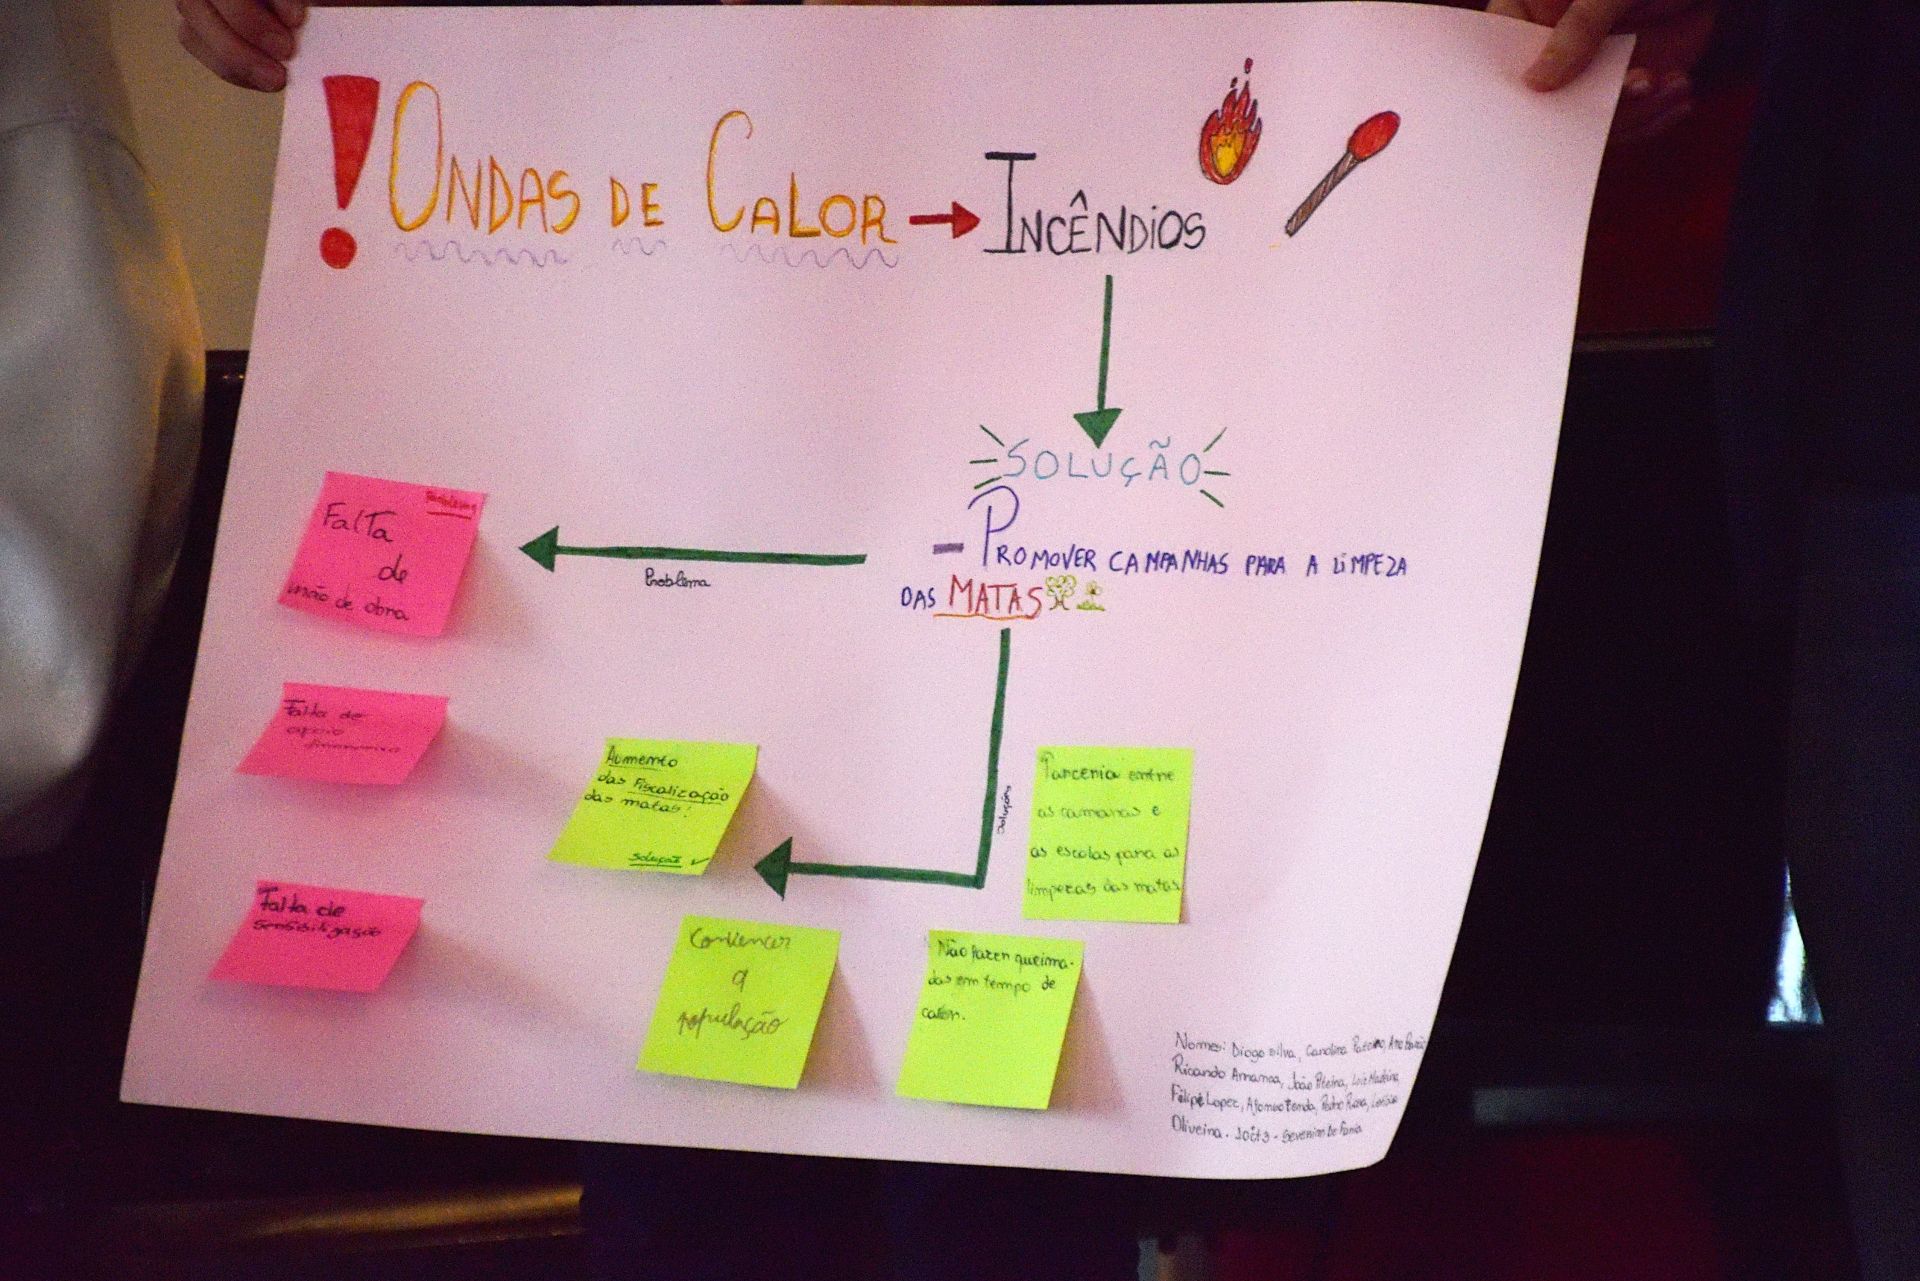 ! ONDAS DE CALOR → INCÊNDIOS
SOLUÇÃO
- PROMOVER CAMPANHAS PARA A LIMPEZA
DAS MATAS
Problema
Problema
Falta
de
mão de obra
Falta de
apoio
financeiro
Falta de
sensibilização
Solução
Aumento
das Fiscalização
das matas!
solução ✓
Parceria entre
as camaras e
as escolas para as
limpezas das matas
Convencer
a
população
Não fazer queima-
das em tempo de
calor.
Nomes: Diogo Silva, Carolina
Ricardo, João
Filipe Lopez, Pedro
Oliveira.